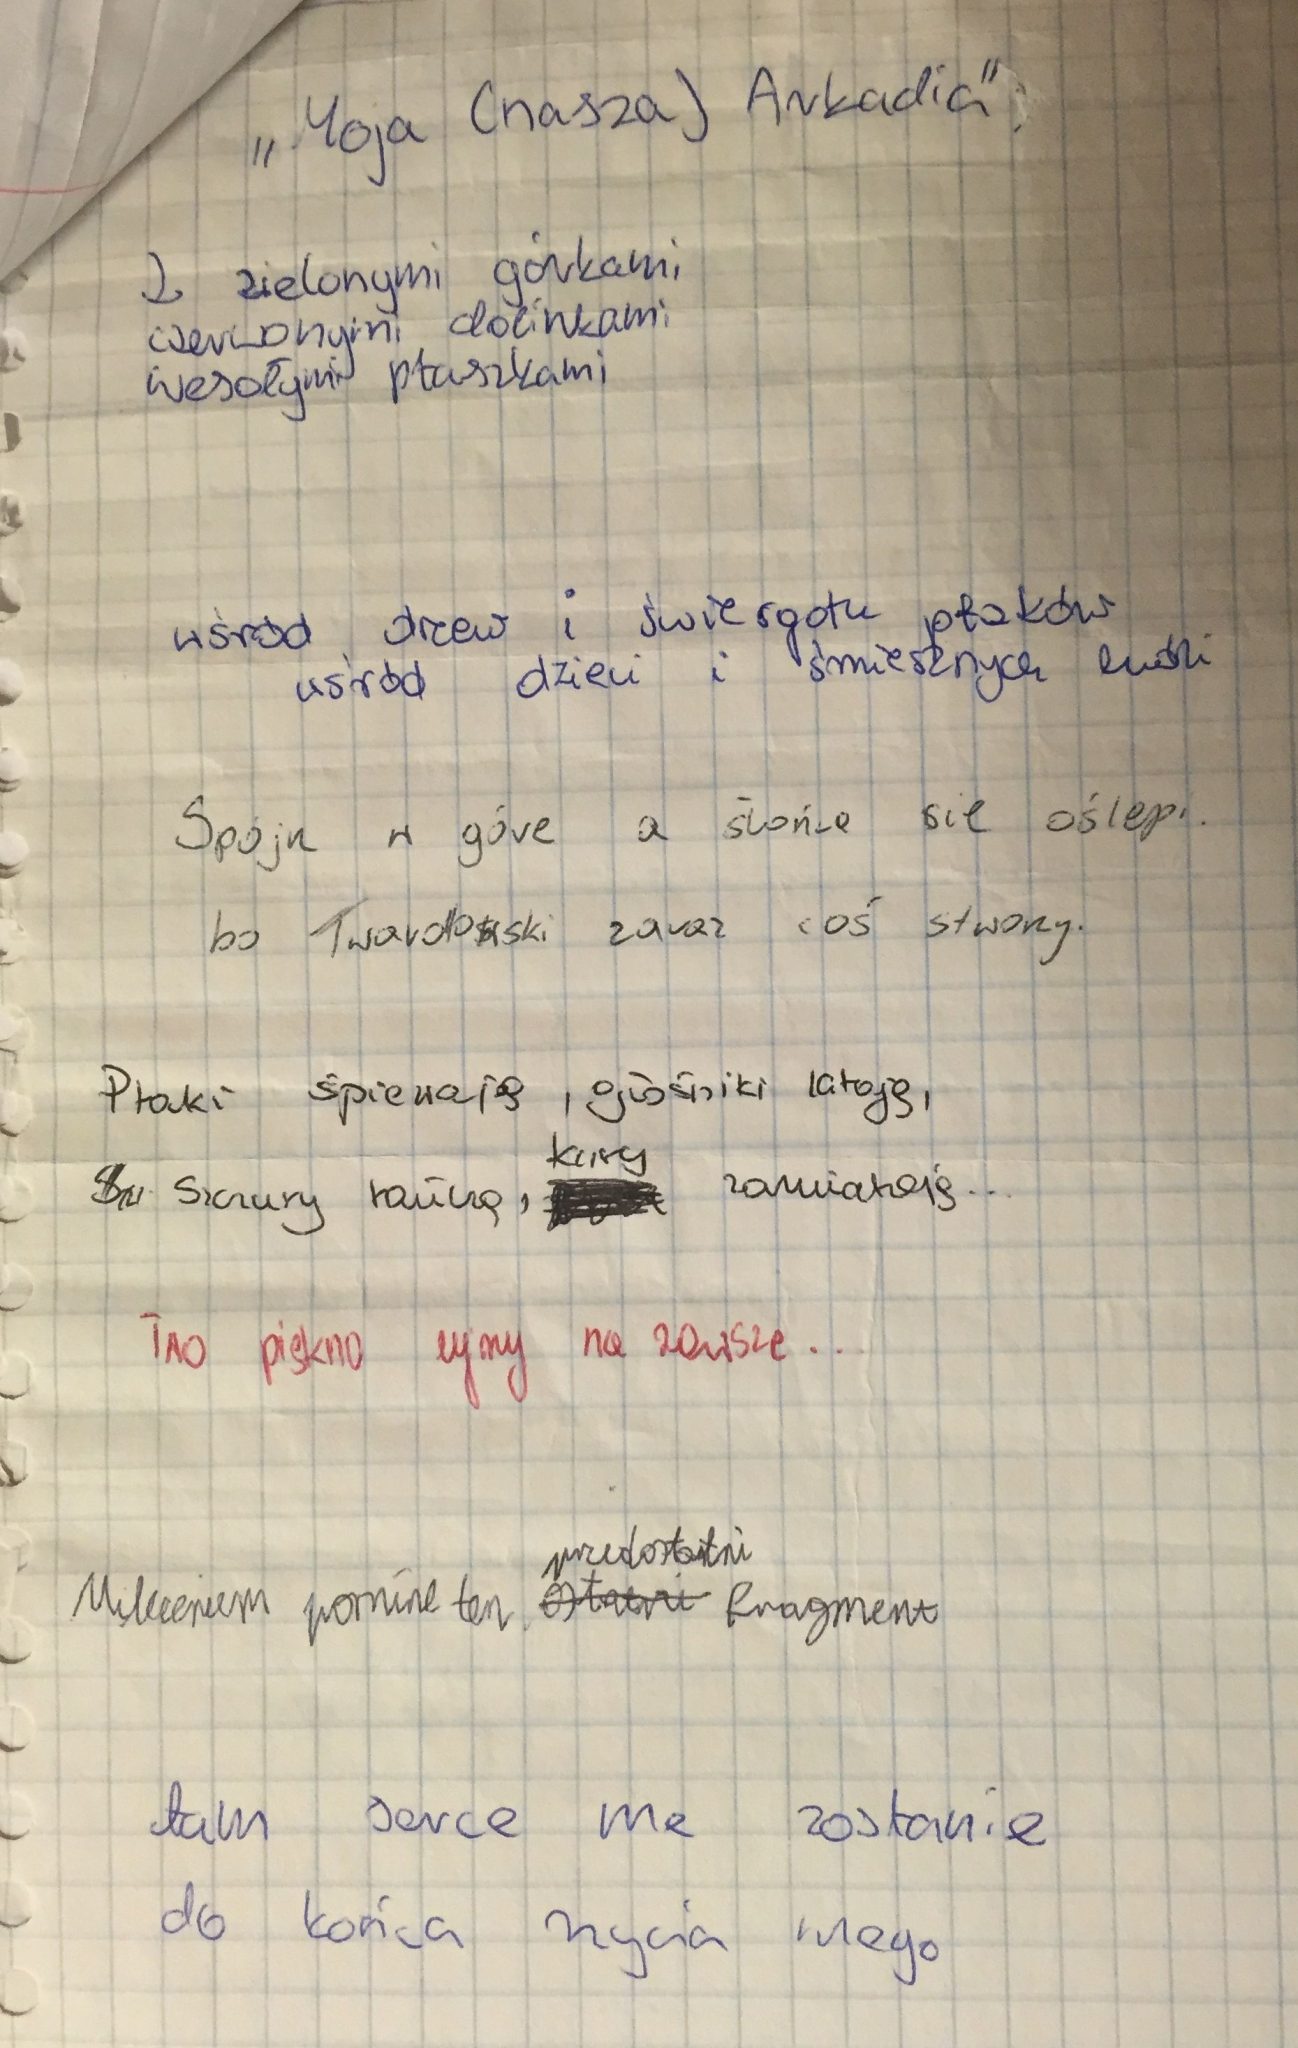 „Moja (nasza) Arkadia"
Z zielonymi górkami
czerwonymi dolinkami
wesołymi ptaszkami
wśród drzew i świergotu ptaków
wśród dzieci i śmiesznych ludzi
Spójrz w górę a słońce się oślepi.
bo Twardowski zaraz coś stworzy.
Ptaki śpiewają, głośniki latają,
Szczury tańczą, kury zamiatają...
piękno rymy na zawsze...
Milczeniem pominę ten przedostatni fragment
tam serce me zostanie
do końca rzycia mego